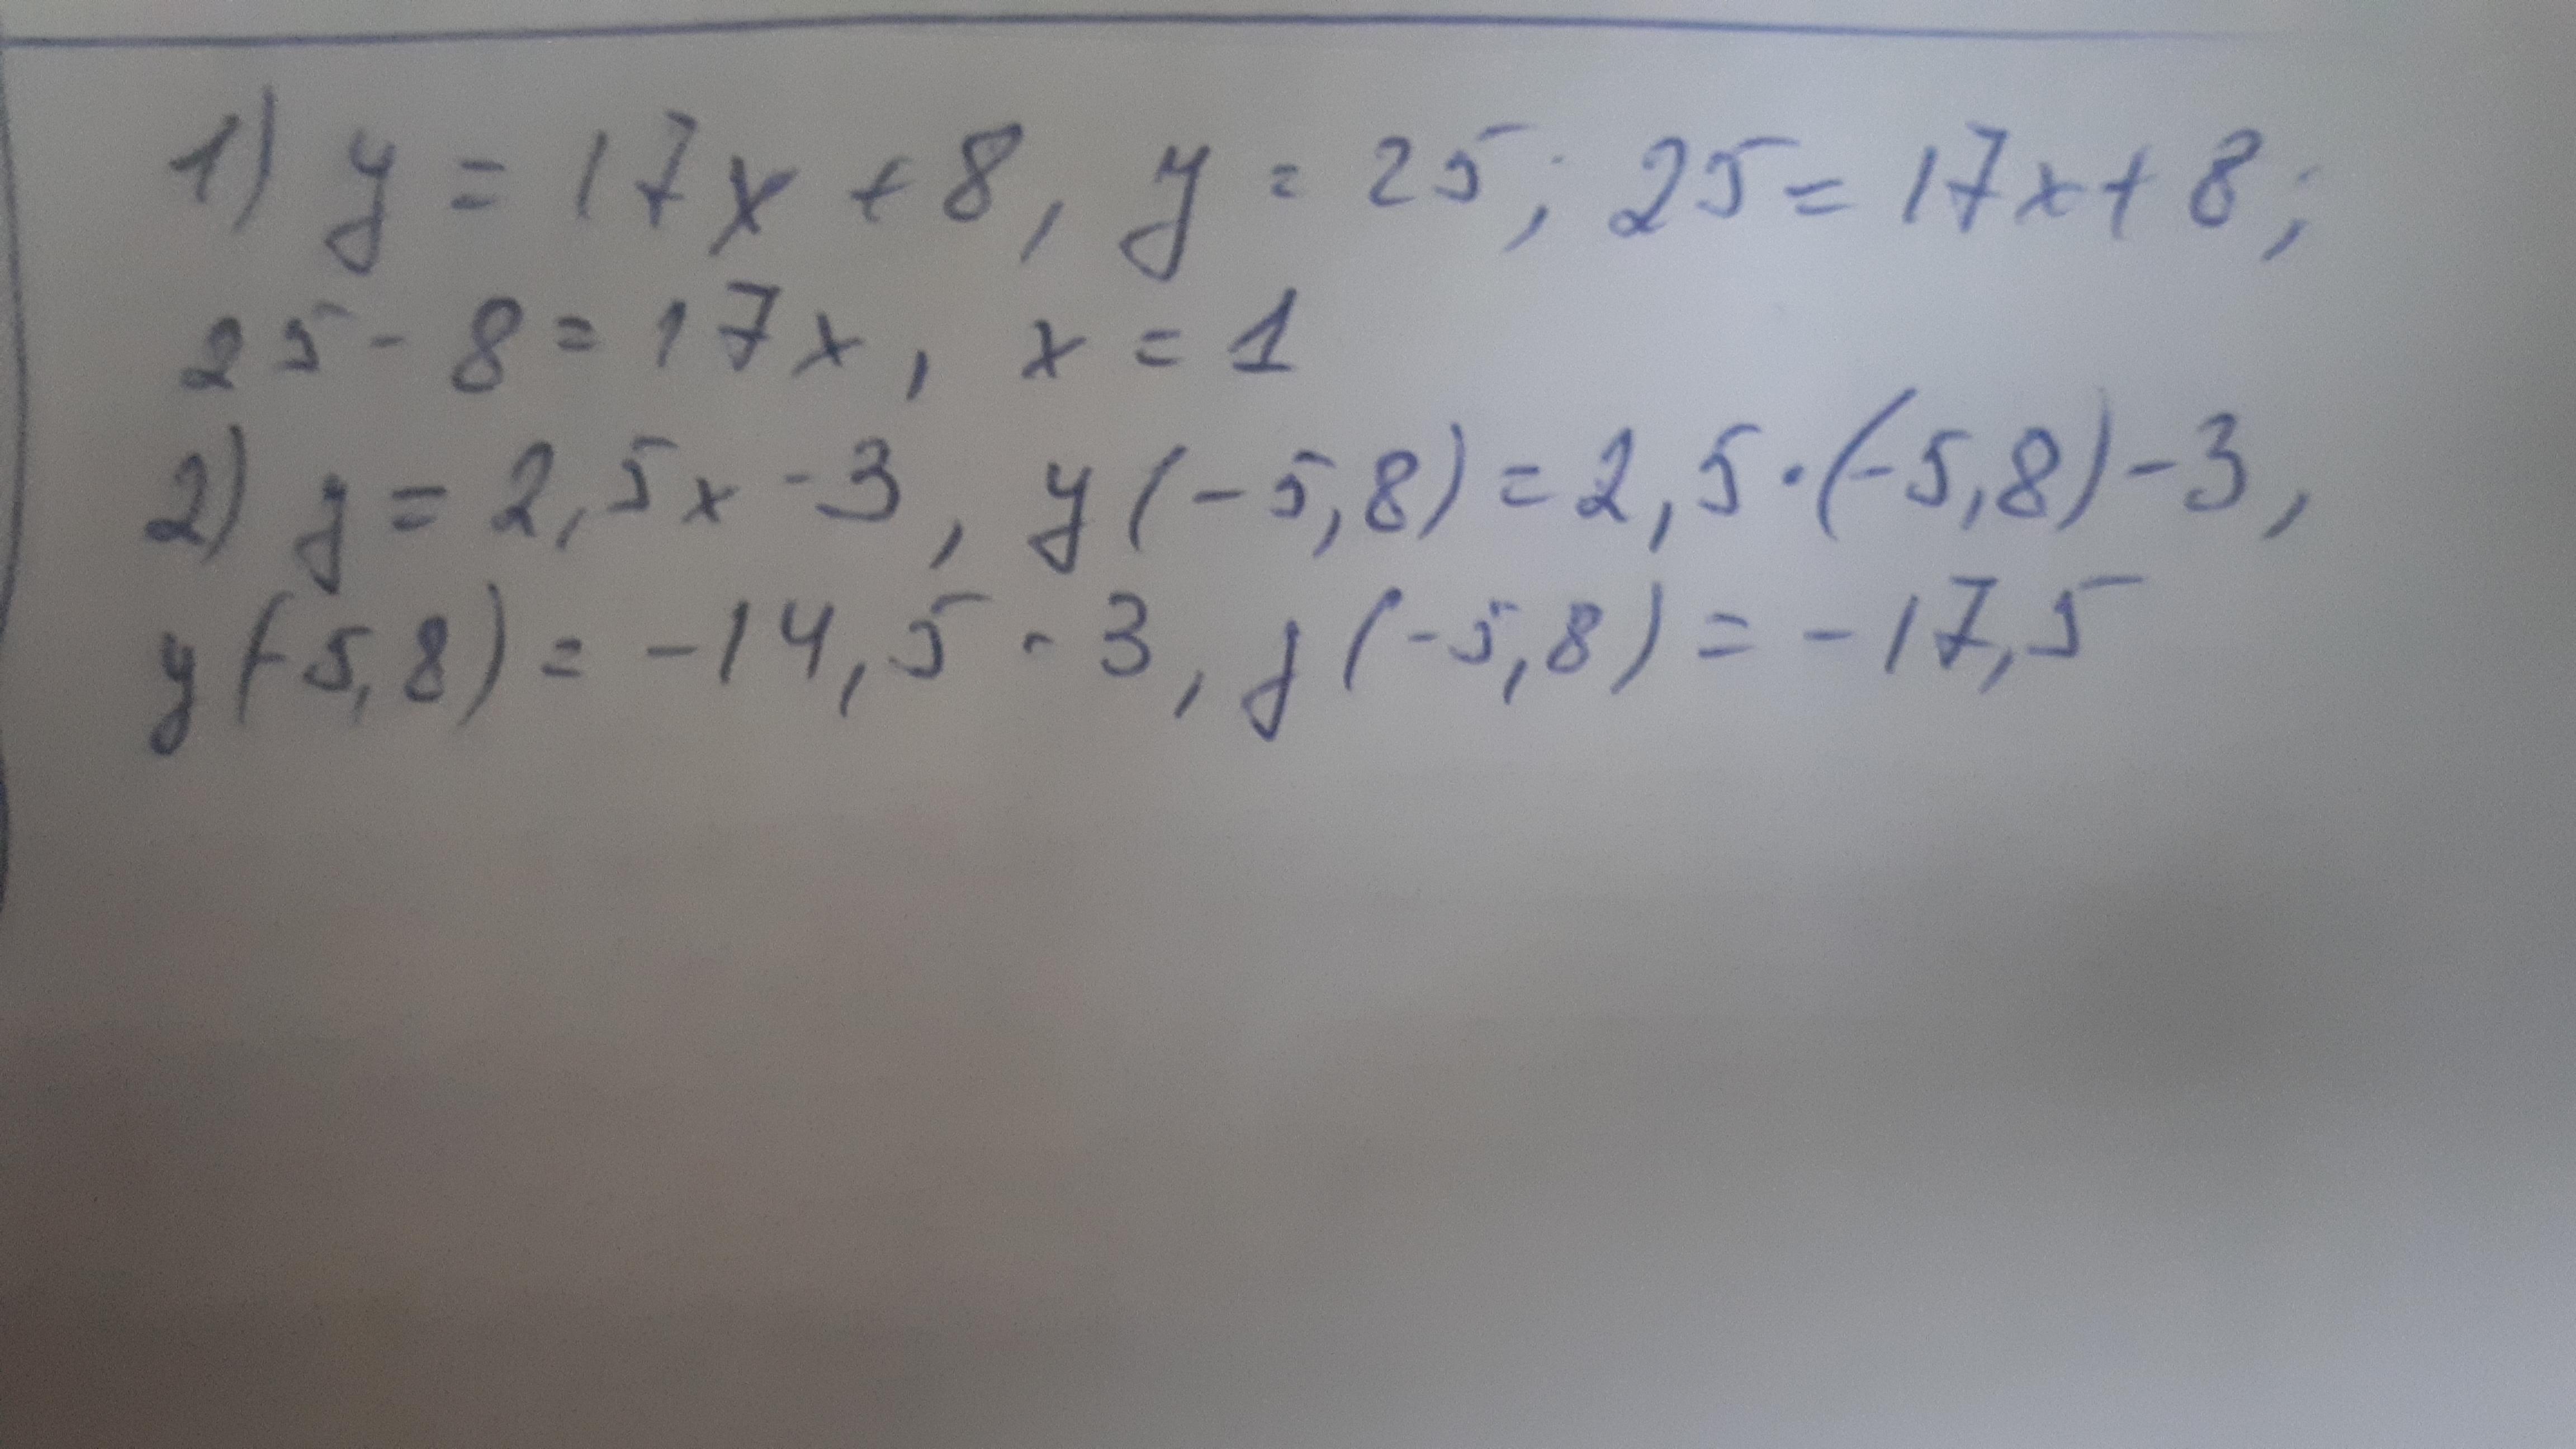 1) y = 17x + 8, y = 25; 25 = 17x + 8;
25 - 8 = 17x, x = 1
2) y = 2,5x - 3, y(-5,8) = 2,5·(-5,8) - 3,
y(-5,8) = -14,5 - 3, y(-5,8) = -17,5